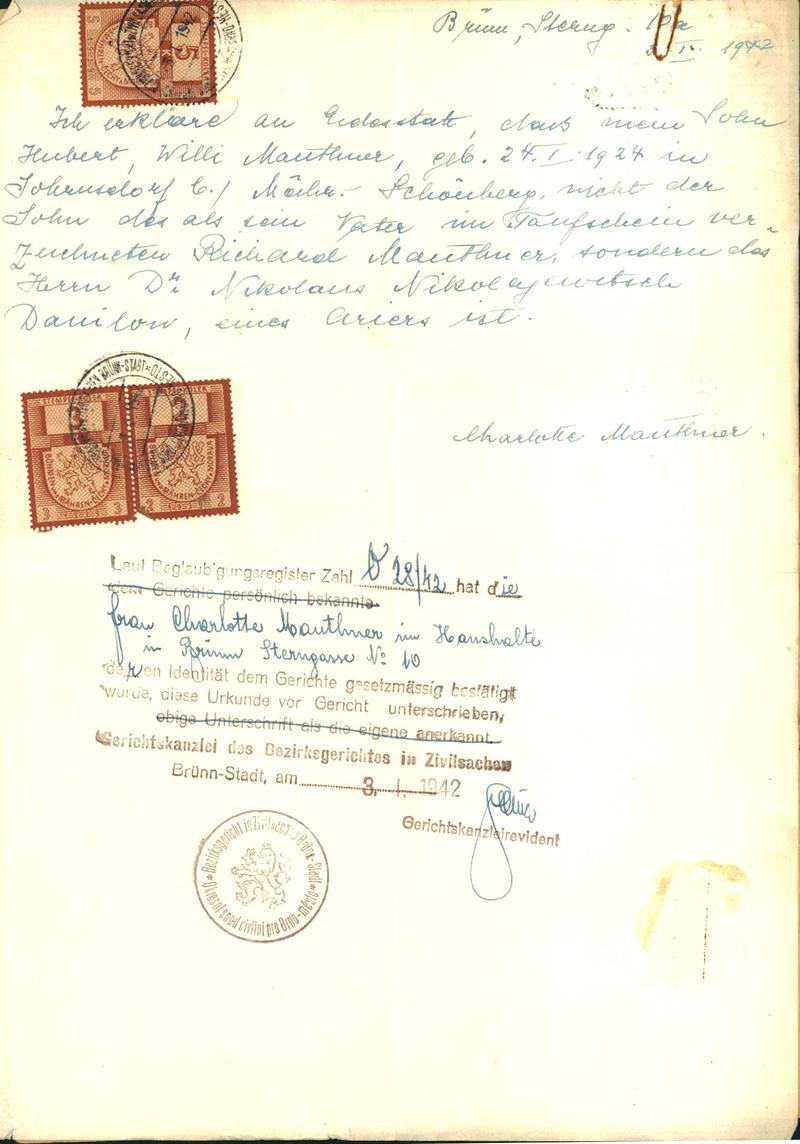 Brünn, Sterng. 10a
3. I. 1942
Ich erkläre an Eidesstatt, daß mein Sohn
Hubert, Willi Mauthner, geb. 24. I. 1924 in
Johrnsdorf b./ Mähr.- Schönberg, nicht der
Sohn des als sein Vater im Taufschein ver-
zeichneten Richard Mauthner, sondern des
Herrn Dr. Nikolaus Nikolajewitsch
Danilow, eines Ariers ist.
Charlotte Mauthner.
STEMPELMARKEN
BÖHMEN UND MÄHREN
3 3
2 2
Laut Beglaubigungsregister Zahl 28/42 hat die
dem Gerichte persönlich bekannte
Frau Charlotte Mauthner im Haushalte
in Brünn Sterngasse No 10
deren Identität dem Gerichte gesetzmässig bestätigt
wurde, diese Urkunde vor Gericht unterschrieben,
obige Unterschrift als die eigene anerkannt.
Gerichtskanzlei des Bezirksgerichtes in Zivilsachen
Brünn-Stadt, am 3. I. 1942
Gerichtskanzleirevident
Bezirksgericht in Zivilsachen Brünn-Stadt
Okresní soud civilní pro Brno-město